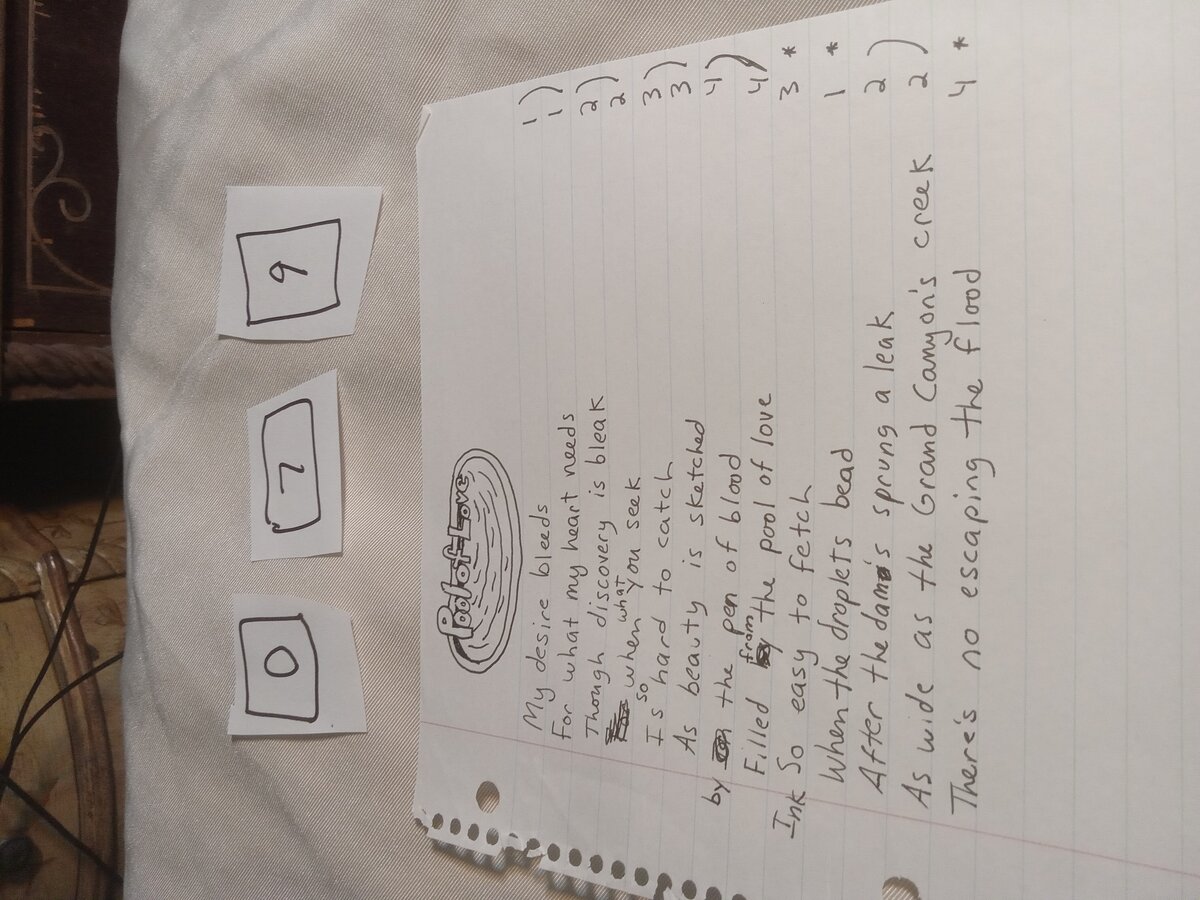 0 7 9
Pool of Love
My desire bleeds 1)
For what my heart needs 1)
Though discovery is bleak 2)
so when what you seek 2)
Is hard to catch 3)
As beauty is sketched 3)
by the pen of blood 4)
Filled from the pool of love 4)
Ink So easy to fetch 3 *
When the droplets bead 1 *
After the dam's sprung a leak 2)
As wide as the Grand Canyon's creek 2)
There's no escaping the flood 4 *